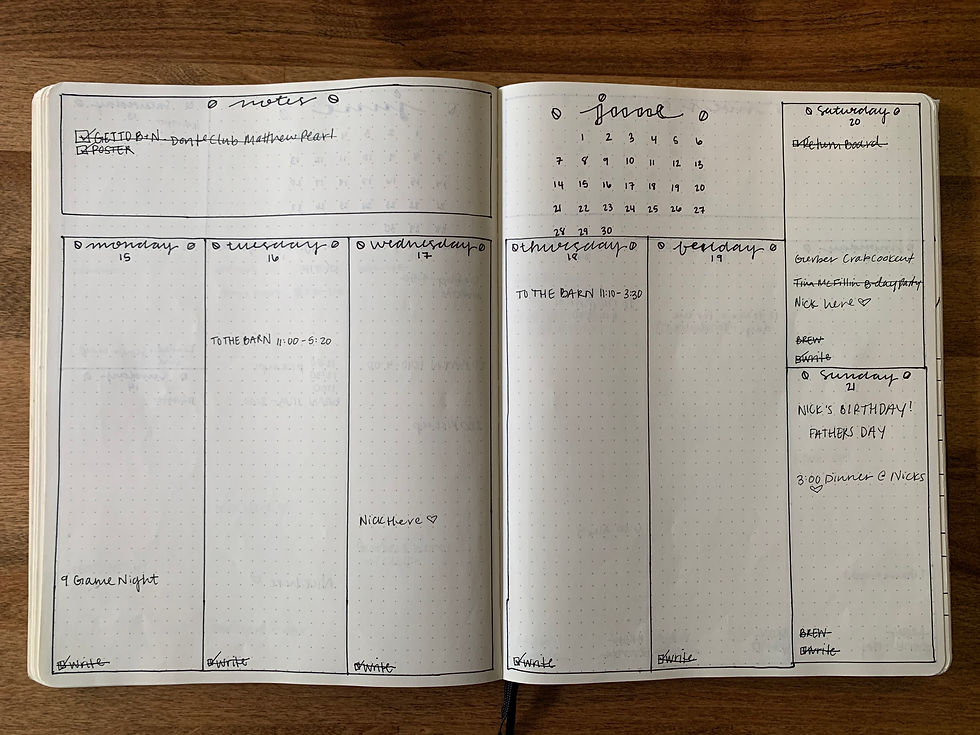 notes
GET TO B+N - Dante Club Matthew Pearl
POSTER
monday
15
9 Game Night
write
tuesday
16
TO THE BARN 11:00-5:20
write
wednesday
17
Nick Here ♡
write
june
1 2 3 4 5 6
7 8 9 10 11 12 13
14 15 16 17 18 19 20
21 22 23 24 25 26 27
28 29 30
thursday
18
TO THE BARN 11:10-3:30
write
friday
19
write
saturday
20
Return Board
Gerber Crab Cookout
Tim McFillin B-day Party
Nick here ♡
BREW
write
sunday
21
NICK'S BIRTHDAY!
FATHERS DAY
3:00 Dinner @ Nicks
♡
BREW
write